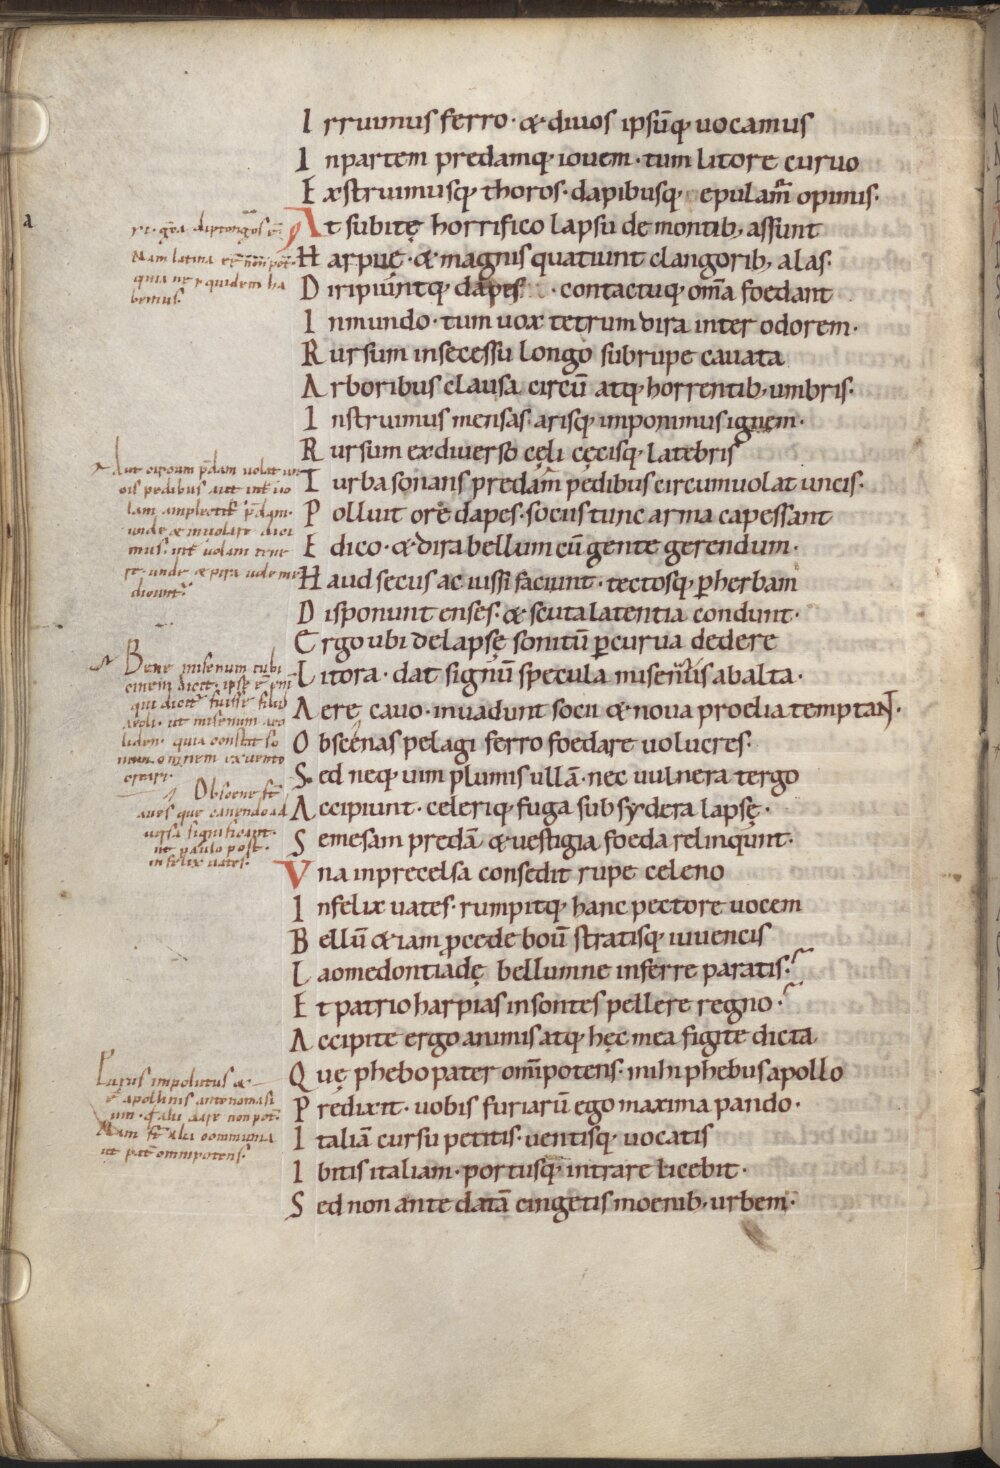 a
Irruimus ferro · & diuos ipsūq; uocamus
Inpartem predamq; iouem · tum litore curuo
Exstruimusq; thoros · dapibusq; epulam̄ opimis ·
At subitę horrifico lapsu de montib; assunt
Harpuę · & magnis quatiunt clangorib; alas ·
Diripiuntq; dapes · contactuq; om̄a foedant
Inmundo · tum uox tetrum dira inter odorem ·
Rursum insecessu longo subrupe cauata
Arboribus clausa circū atq; horrentib; umbris ·
Instruimus mensas · arisq; imponimus ignem ·
Rursum exdiuerso cęli cęcisq; latebris
Turba sonans predam̄ pedibus circumuolat uncis ·
Polluit ore dapes · sociis tunc arma capessant
Edico · & dira bellum cū gente gerendum ·
Haud secus ac iussi faciunt · tectosq; p̄ herbam
Disponunt enses · & scuta latentia condunt ·
Ergo ubi delapsę sonitū p̄ curua dedere
Litora · dat signū specula misenus abalta ·
Aere cauo · inuadunt socii & noua proelia temptaNt ·
Obscenas pelagi ferro foedare uolucres ·
Sed neq; uim plumis ullā · nec uulnera tergo
Accipiunt · celeriq; fuga sub sydera lapsę ·
Semesam predā & uestigia foeda relinqunt ·
Vna inprecelsa consedit rupe celeno
Infelix uates · rumpitq; hanc pectore uocem
Bellū & iam p̄cede boū stratisq; iuuencis
Laomedontiadę bellumne inferre paratis ·
Et patrio harpias insontes pellere regno ·
Accipite ergo animis atq; hęc mea figite dicta
Quę phebo pater om̄ipotens · mihi phebus apollo
Predixit · uobis furiarū ego maxima pando ·
Italiā cursu petitis · uentisq; uocatis
Ibitis italiam · portusq; intrare licebit ·
Sed non ante datā cingetis moenib; urbem ·
Nam latina
quia ne quidem ha
bemus
Aut
pedibus aut
lam
unde & inuolare dici
mus · uolam tene
unde & pira
dicunt
Bene misenum tubi
cinem
qui fuisse filiū
aeoli · ut misenum aeo
liden · quia constat so
num omnem ex uento
creari ·
Obscene
aues que canendo ad
uersa significant ·
ut paulo post ·
infelix uates ·
apollinis antonomasi
dare non
Nam communia
ut omnipotens ·